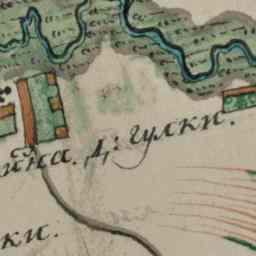 ина. д: гулки.
ки.